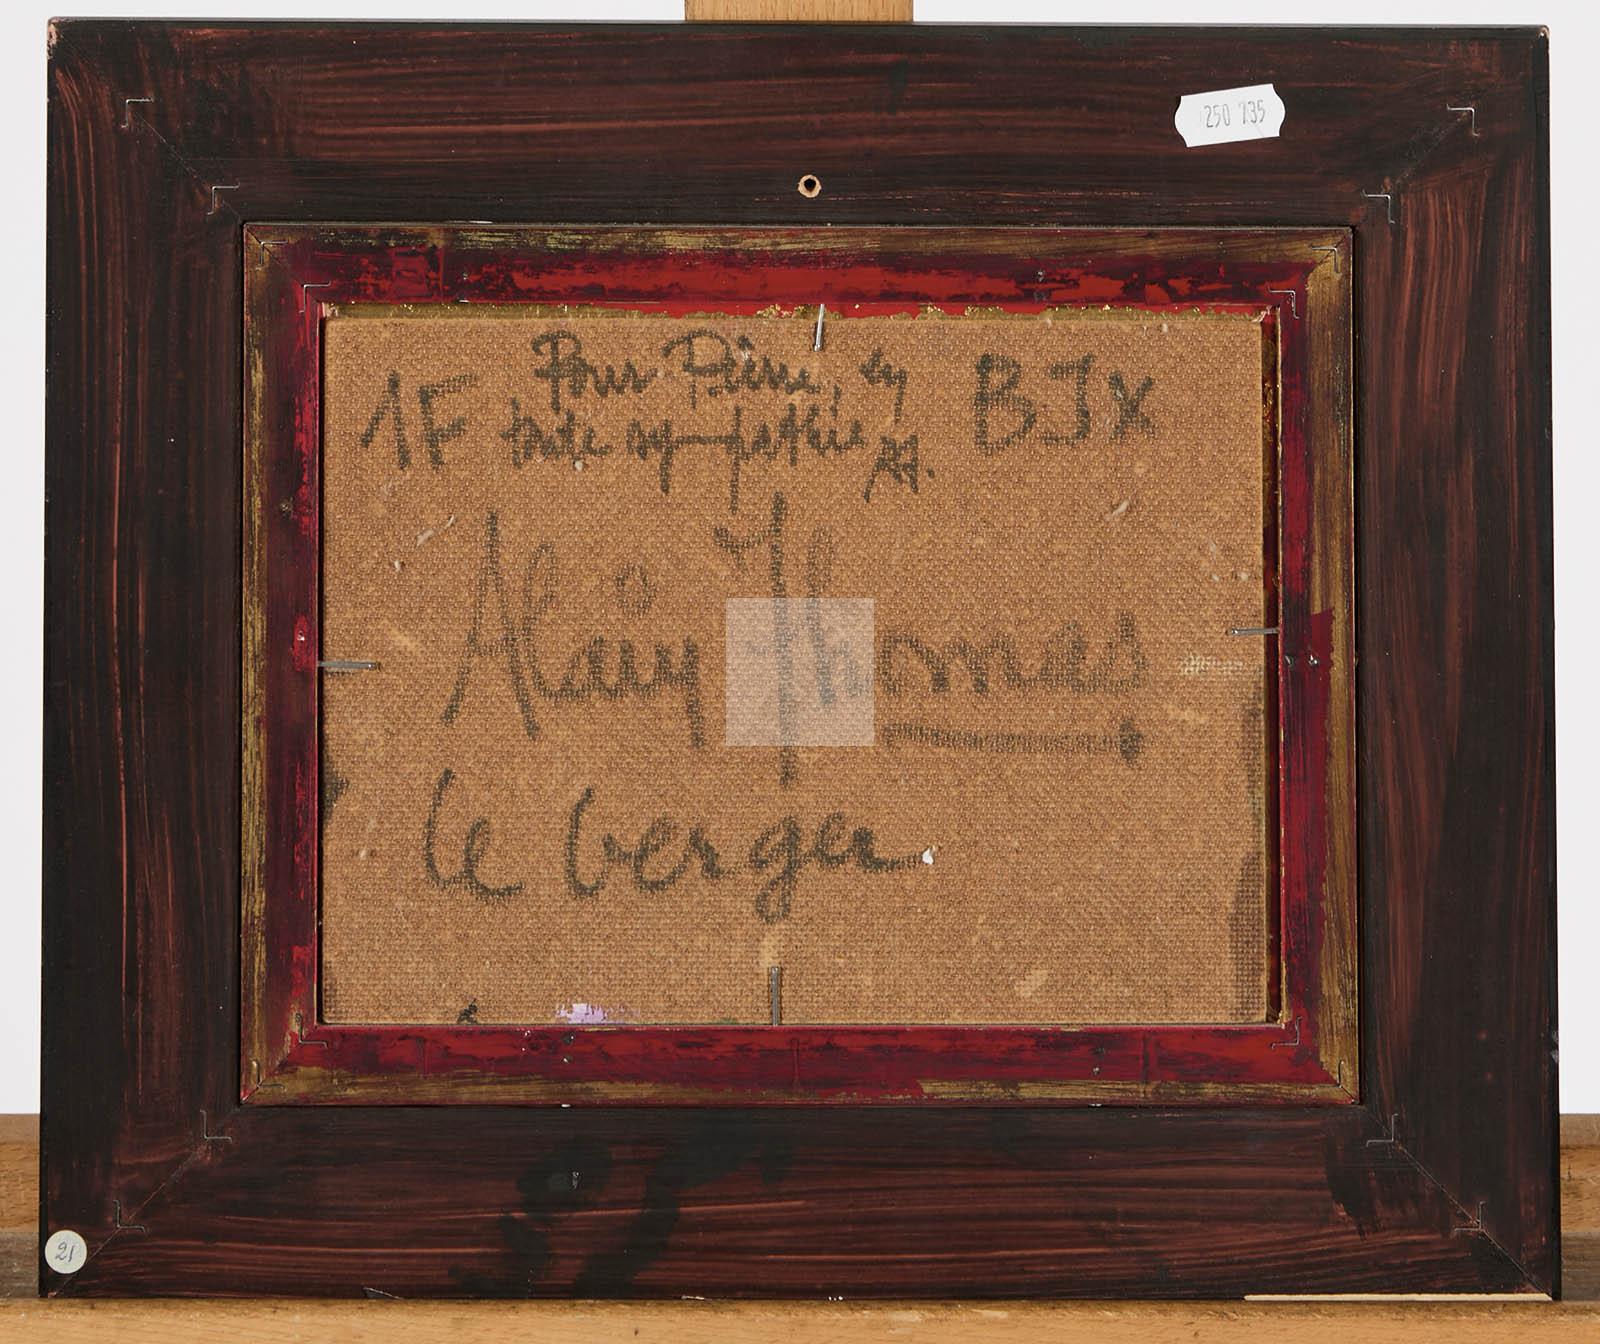 250 735
1F Pour Pierre, en BJX
toute sympathie AT.
Alain Thomas
le berger
21